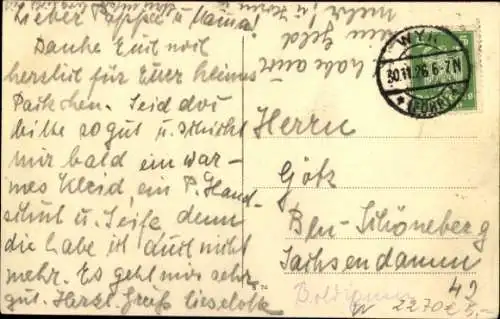 Lieber Pappa u. Mama!
Danke Euch noch
herzlich für Euer kleines
Päckchen. Seid doch
bitte so gut u. schickt
mir bald ein war-
mes Kleid, ein P. Hand-
schuh u. Seife, denn
die habe ich auch nicht
mehr. Es geht mir sehr
gut. Herzl. Grüße Lieselotte
habe auch
kein Geld
mehr
WYK
30.11.26. 6-7N
(FÖHR)
Herrn
Götz
Bln-Schöneberg
Sachsendamm
42
2270 € 5,-